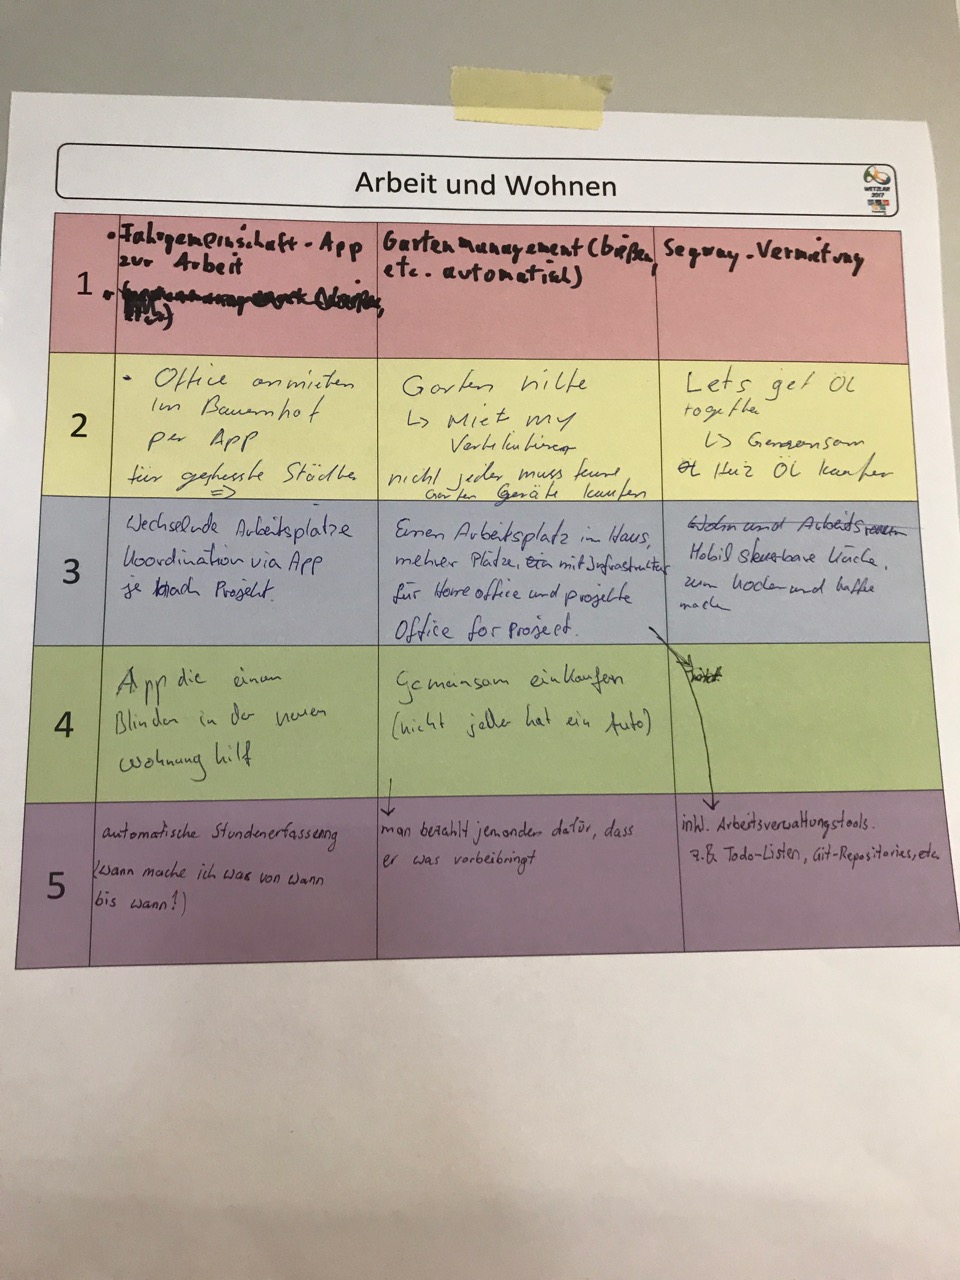 Arbeit und Wohnen
WETZLAR
2017
1
• Fahrgemeinschaft - App
zur Arbeit
•
Gartenmanagement (Gießen,
etc. automatisch)
Segway - Vermietung
2
• Office anmieten
im Bauernhof
per App
für gestresste Städter
=>
Garten hilfe
↳ Miet my
Vertikutierer
nicht jeder muss teure
Garten Geräte kaufen
Lets get ÖL
together
↳ Gemeinsam
Heiz ÖL kaufen
3
Wechselnde Arbeitsplätze
Koordination via App
je nach Projekt.
Einen Arbeitsplatz im Haus,
mehrer Plätze, mit Infrastruktur
für Home office und projekte
Office for Project.
Wohn und Arbeits
Mobil steuerbare Küche,
zum Kochen und Kaffee
machen
4
App die einem
Blinden in der neuen
Wohnung hilf
Gemeinsam einkaufen
(nicht jeder hat ein Auto)
5
automatische Stundenerfassung
(wann mache ich was von wann
bis wann?)
man bezahlt jemanden dafür, dass
er was vorbeibringt
inkl. Arbeitsverwaltungstools.
z.B. Todo-Listen, Git-Repositories, etc.